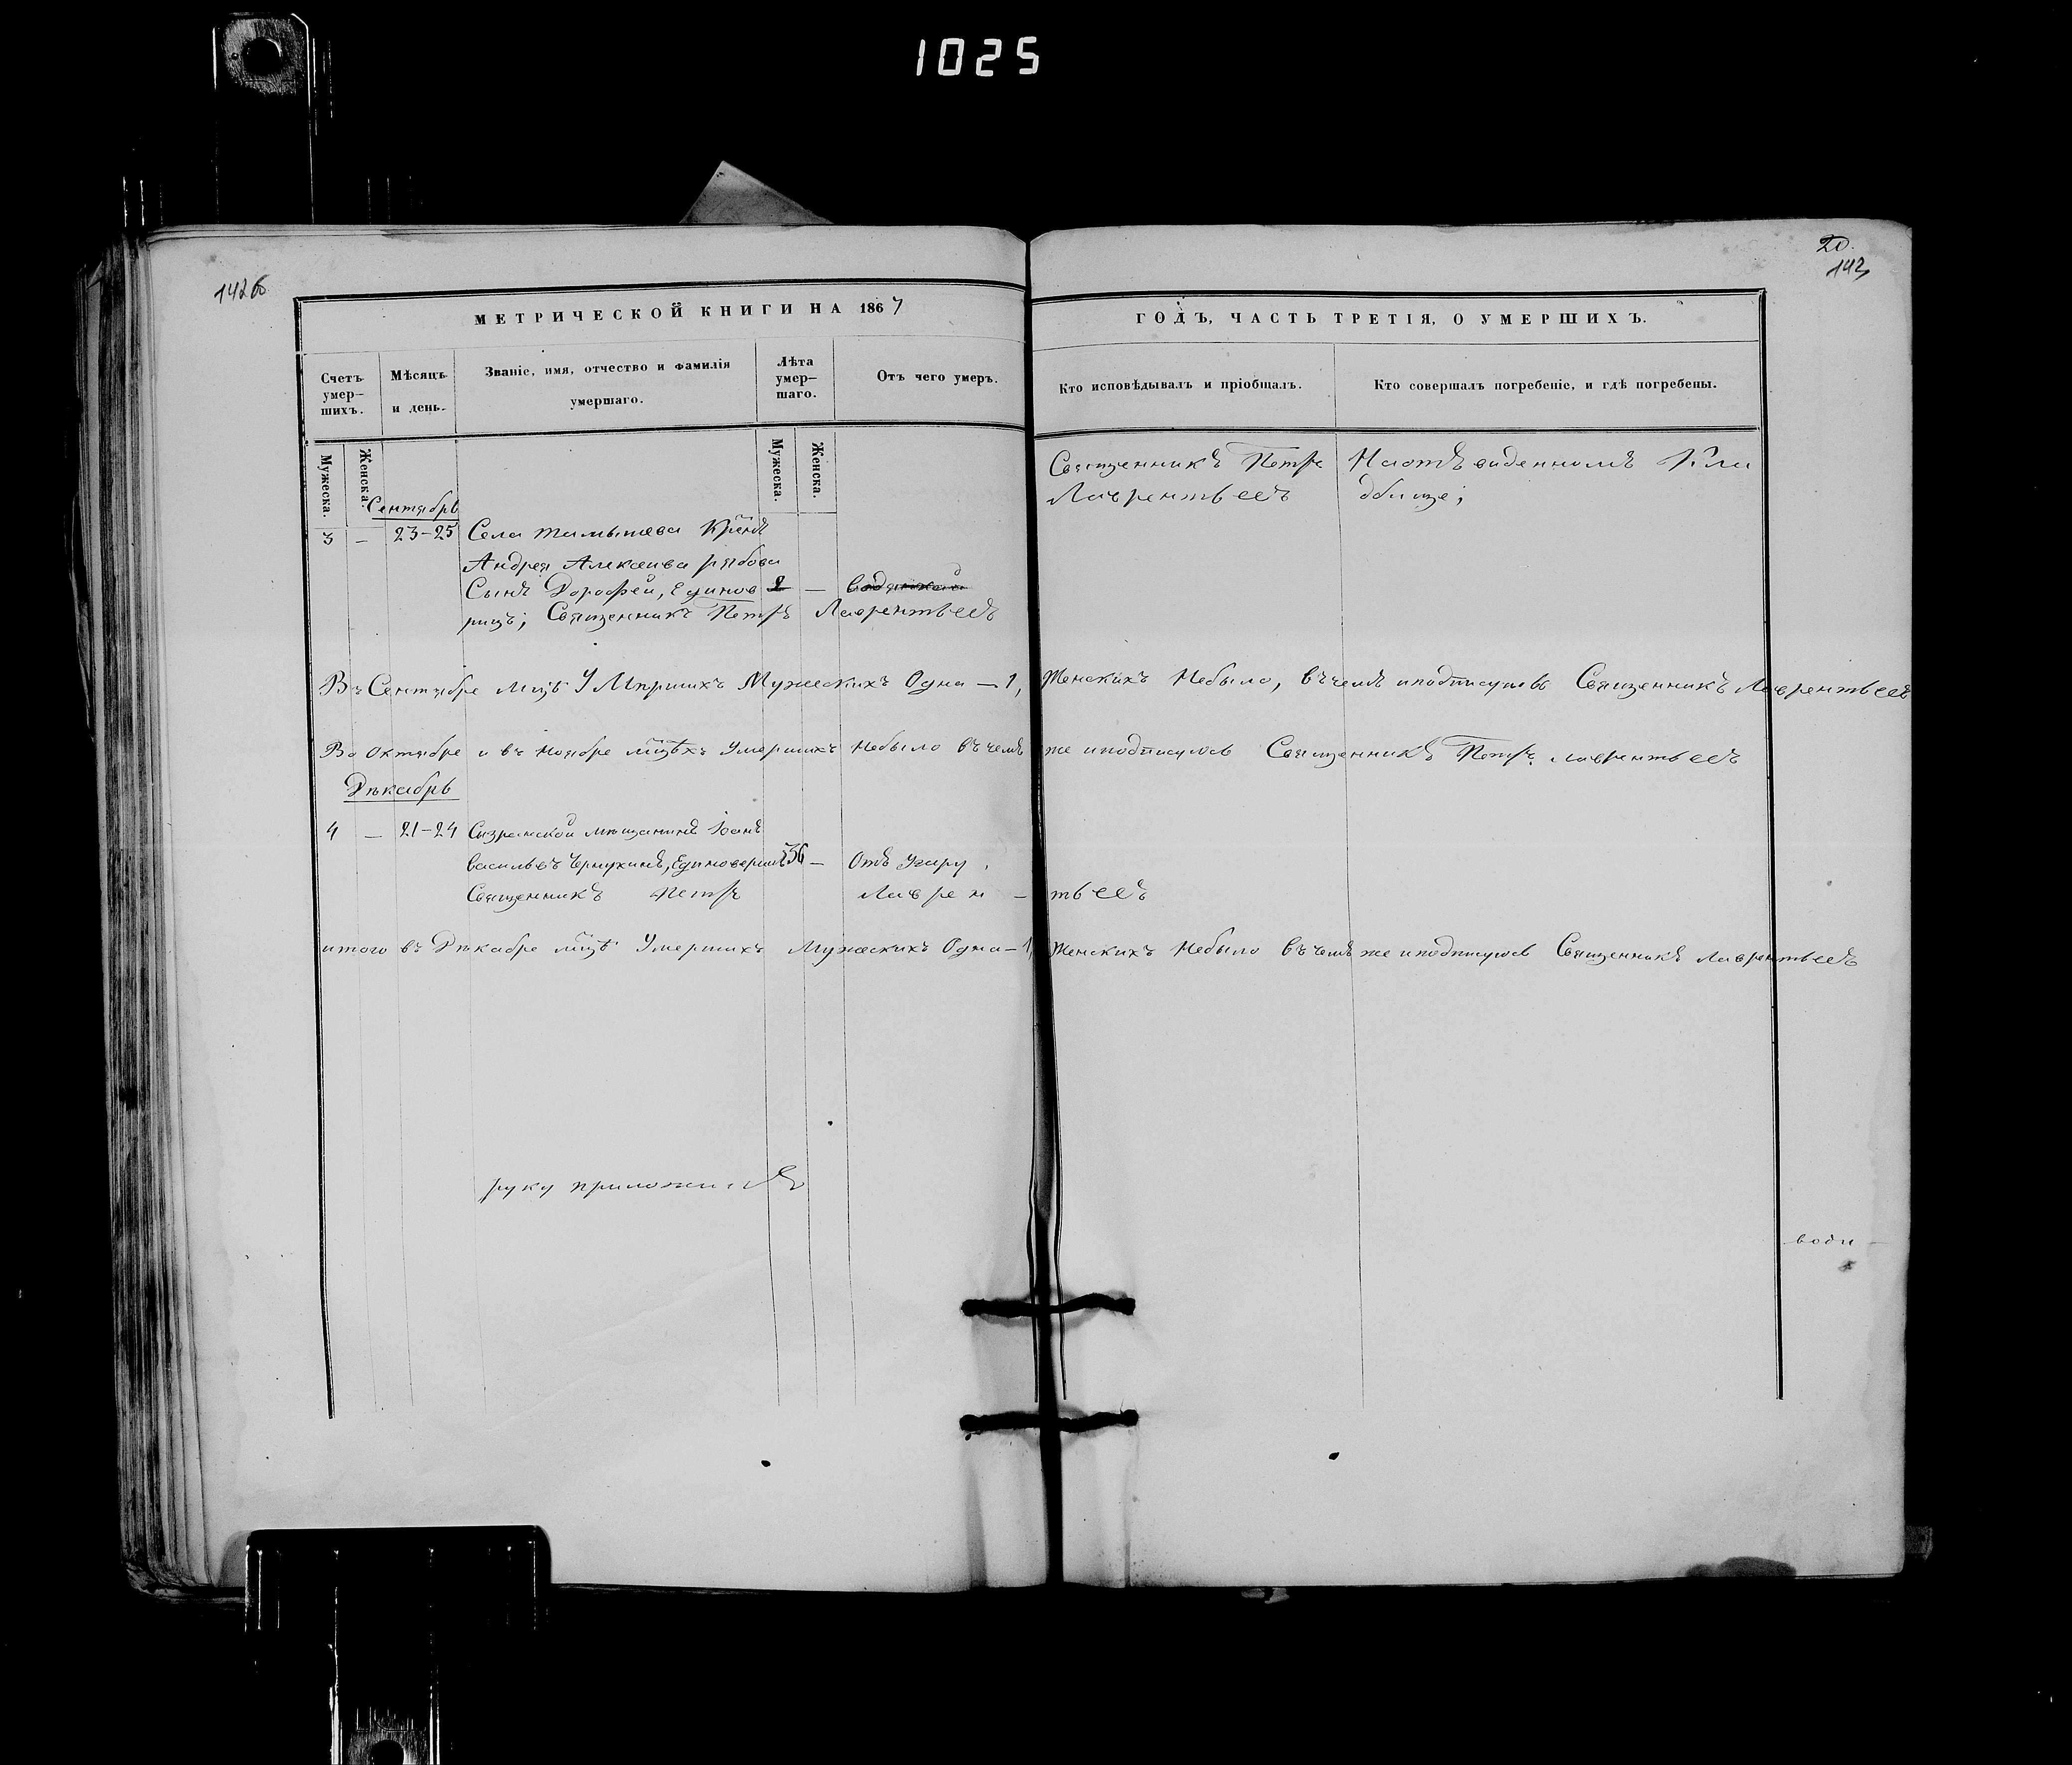 1025
142об
20.
142
МЕТРИЧЕСКОЙ КНИГИ НА 1867
ГОДЪ, ЧАСТЬ ТРЕТІЯ, О УМЕРШИХЪ.
Счетъ умер–шихъ.
Мѣсяцъ и день.
Званіе, имя, отчество и фамилія умершаго.
Лѣта умер–шаго.
Отъ чего умеръ.
Кто исповѣдывалъ и пріобщалъ.
Кто совершалъ погребеніе, и гдѣ погребены.
Мужеска.
Женска.
Мужеска.
Женска.
Сентябрь
Священникъ Петръ
Лаврентьевъ
На отъвиденномъ Кла
дбище;
3 — 23-25 Села
Андрея Алексѣева рябова
Сынъ Дорофей, Единов 2 —
рицъ; Священникъ Петръ Лаврентьевъ
Въ Сентябре мцѣ Умпршихъ Мужескихъ Одна — 1, Женскихъ Небыло, въ чемъ иподписуюсь Священникъ Лаврентьевъ
Во Октябре и въ Ноябре мцѣхъ Умершихъ Небыло въ чемъ же иподписуюсь Священникъ Петръ Лаврентьевъ
Дѣкабрь
4 — 21-24 Сызранской мещанинъ Іоанъ
васильевъ Единоверицъ 36 — Отъ Угару.
Священникъ Петръ Лаврен — тьевъ
итого въ Дѣкабре мцѣ Умершихъ Мужескихъ Одна — 1, Женскихъ Небыло въ чемъ же иподписуюсь Священникъ Лаврентьевъ
руку приложилъ
води —